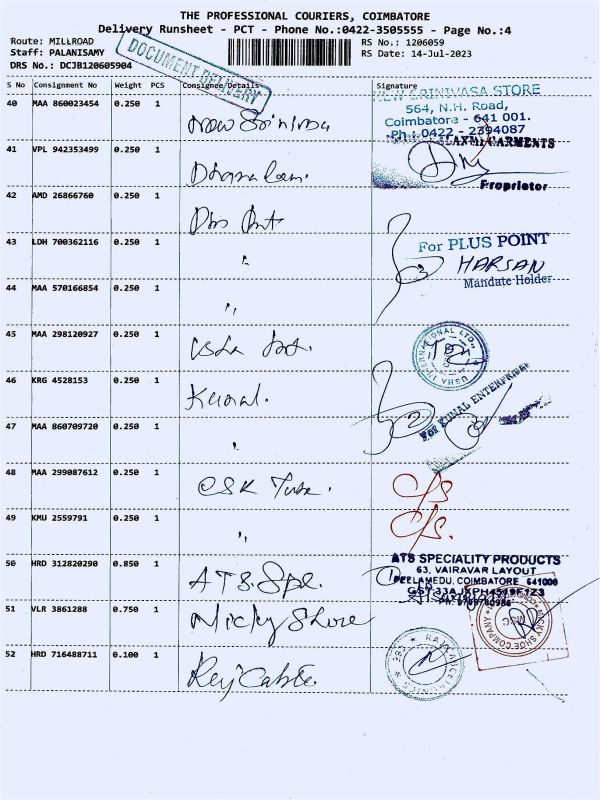 THE PROFESSIONAL COURIERS, COIMBATORE
Delivery Runsheet - PCT - Phone No.:0422-3505555 - Page No.:4
Route: MILLROAD
RS No.: 1206059
Staff: PALANISAMY
RS Date: 14-Jul-2023
DRS No.: DCJB120605904
DOCUMENT DELIVERY
S No Consignment No Weight PCS Consignee/Details Signature
40 MAA 860023454 0.250 1 New Srinivasa
NEW SRINIVASA STORE
564, N.H. Road,
Coimbatore - 641 001.
Ph : 0422 - 2394087
41 VPL 942353499 0.250 1
GARMENTS
Proprietor
42 AMD 26866760 0.250 1
43 LDH 700362116 0.250 1 "
For PLUS POINT
HARSAN
Mandate Holder
44 MAA 570166854 0.250 1 "
45 MAA 298120927 0.250 1 Usha Int.
USHA INTERNATIONAL LTD.
46 KRG 4528153 0.250 1 Kunal.
For KUNAL ENTERPRISES
47 MAA 860709720 0.250 1 "
48 MAA 299087612 0.250 1 CSK Tube.
49 KMU 2559791 0.250 1 "
50 HRD 312820290 0.850 1 ATS. Spl.
ATS SPECIALITY PRODUCTS
63, VAIRAVAR LAYOUT
PEELAMEDU, COIMBATORE 641000
51 VLR 3861288 0.750 1 Nicky Shoe
NICKY SHOE COMPANY
52 HRD 716488711 0.100 1 Rej Cable.